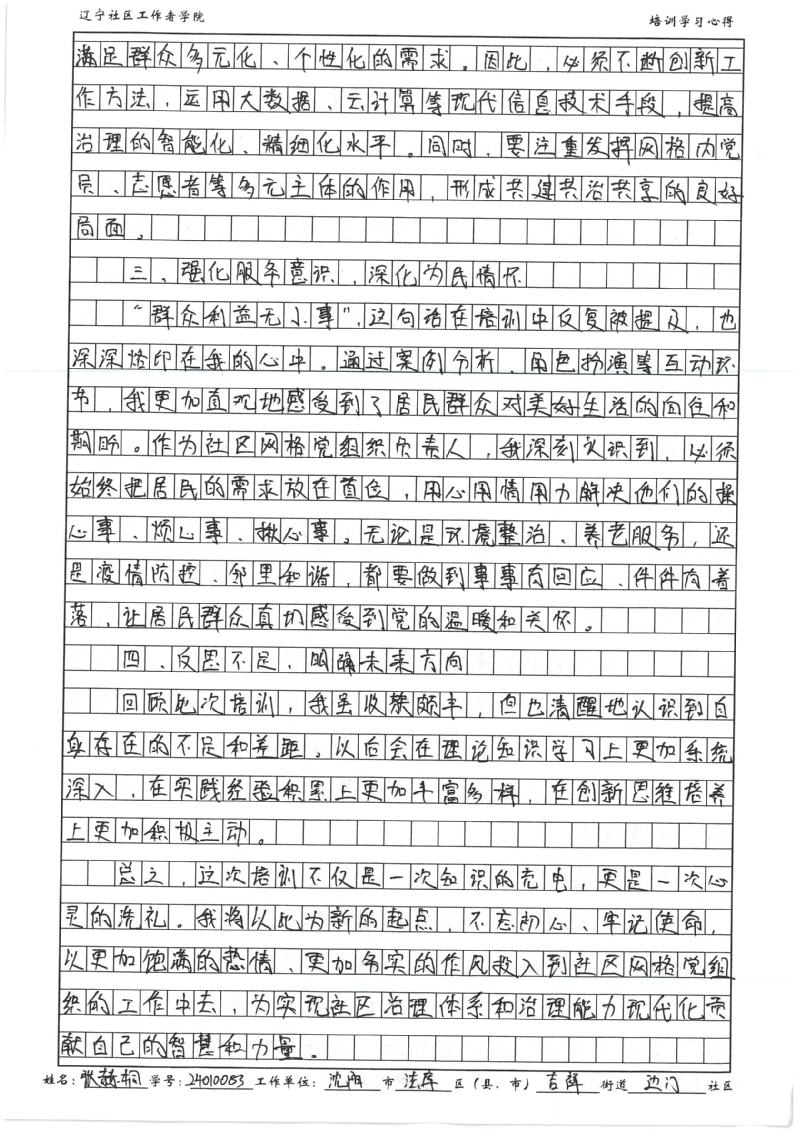 辽宁社区工作者学院 培训学习心得
满足群众多元化、个性化的需求。因此，必须不断创新工
作方法，运用大数据、云计算等现代信息技术手段，提高
治理的智能化、精细化水平。同时，要注重发挥网格内党
员、志愿者等多元主体的作用，形成共建共治共享的良好
局面。
三、强化服务意识，深化为民情怀
“群众利益无小事”，这句话在培训中反复被提及，也
深深烙印在我的心中。通过案例分析、角色扮演等互动环
节，我更加直观地感受到了居民群众对美好生活的向往和
期盼。作为社区网格党组织负责人，我深刻认识到，必须
始终把居民的需求放在首位，用心用情用力解决他们的操
心事、烦心事、揪心事。无论是环境整治、养老服务，还
是疫情防控、邻里和谐，都要做到事事有回应、件件有着
落，让居民群众真切感受到党的温暖和关怀。
四、反思不足，明确未来方向
回顾此次培训，我虽收获颇丰，但也清醒地认识到自
身存在的不足和差距。以后会在理论知识学习上更加系统
深入，在实践经验积累上更加丰富多样，在创新思维培养
上更加积极主动。
总之，这次培训不仅是一次知识的充电，更是一次心
灵的洗礼。我将以此为新的起点，不忘初心、牢记使命，
以更加饱满的热情、更加务实的作风投入到社区网格党组
织的工作中去，为实现社区治理体系和治理能力现代化贡
献自己的智慧和力量。
姓名：张赫桐 学号：24010083 工作单位：沈阳 市 法库 区（县、市） 吉祥 街道 边门 社区